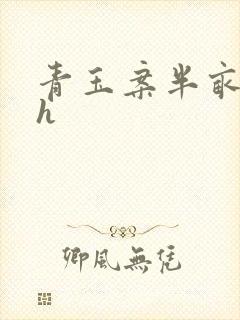 青玉案半畝
h
卿風無凭